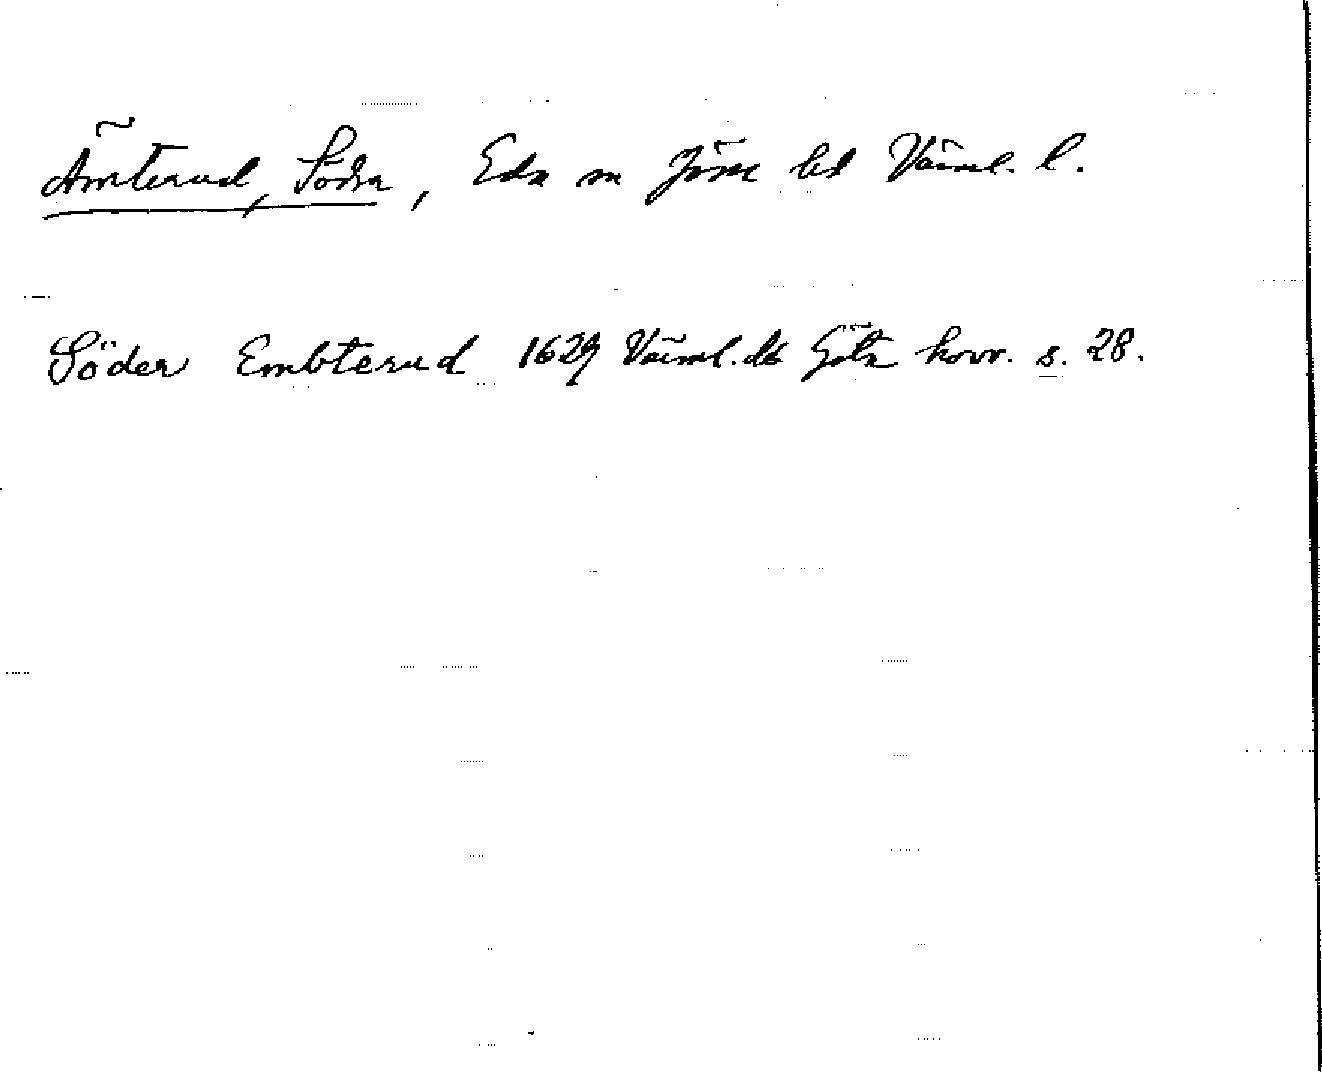 Ämterud, Södra, Eda sn Jösse hd Värml. l.
Söder Embterud 1629 Värml. db Göta hovr. s. 28.